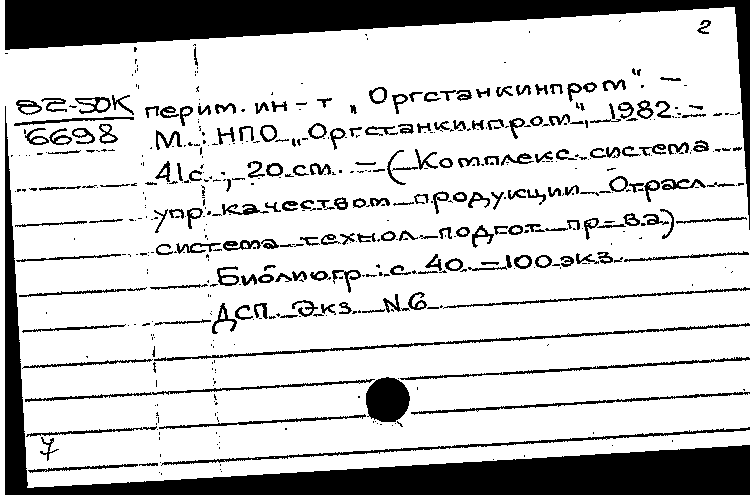 2
82-50К перим. ин-т „Оргстанкинпром“. —
6698 М. : НПО „Оргстанкинпром“, 1982. —
41с. ; 20 см. — (Комплекс. система
упр. качеством продукции. Отрасл.
система технол. подгот. пр-ва)
Библиогр.: с. 40. — 100 экз.
ДСП. Экз. N6
7